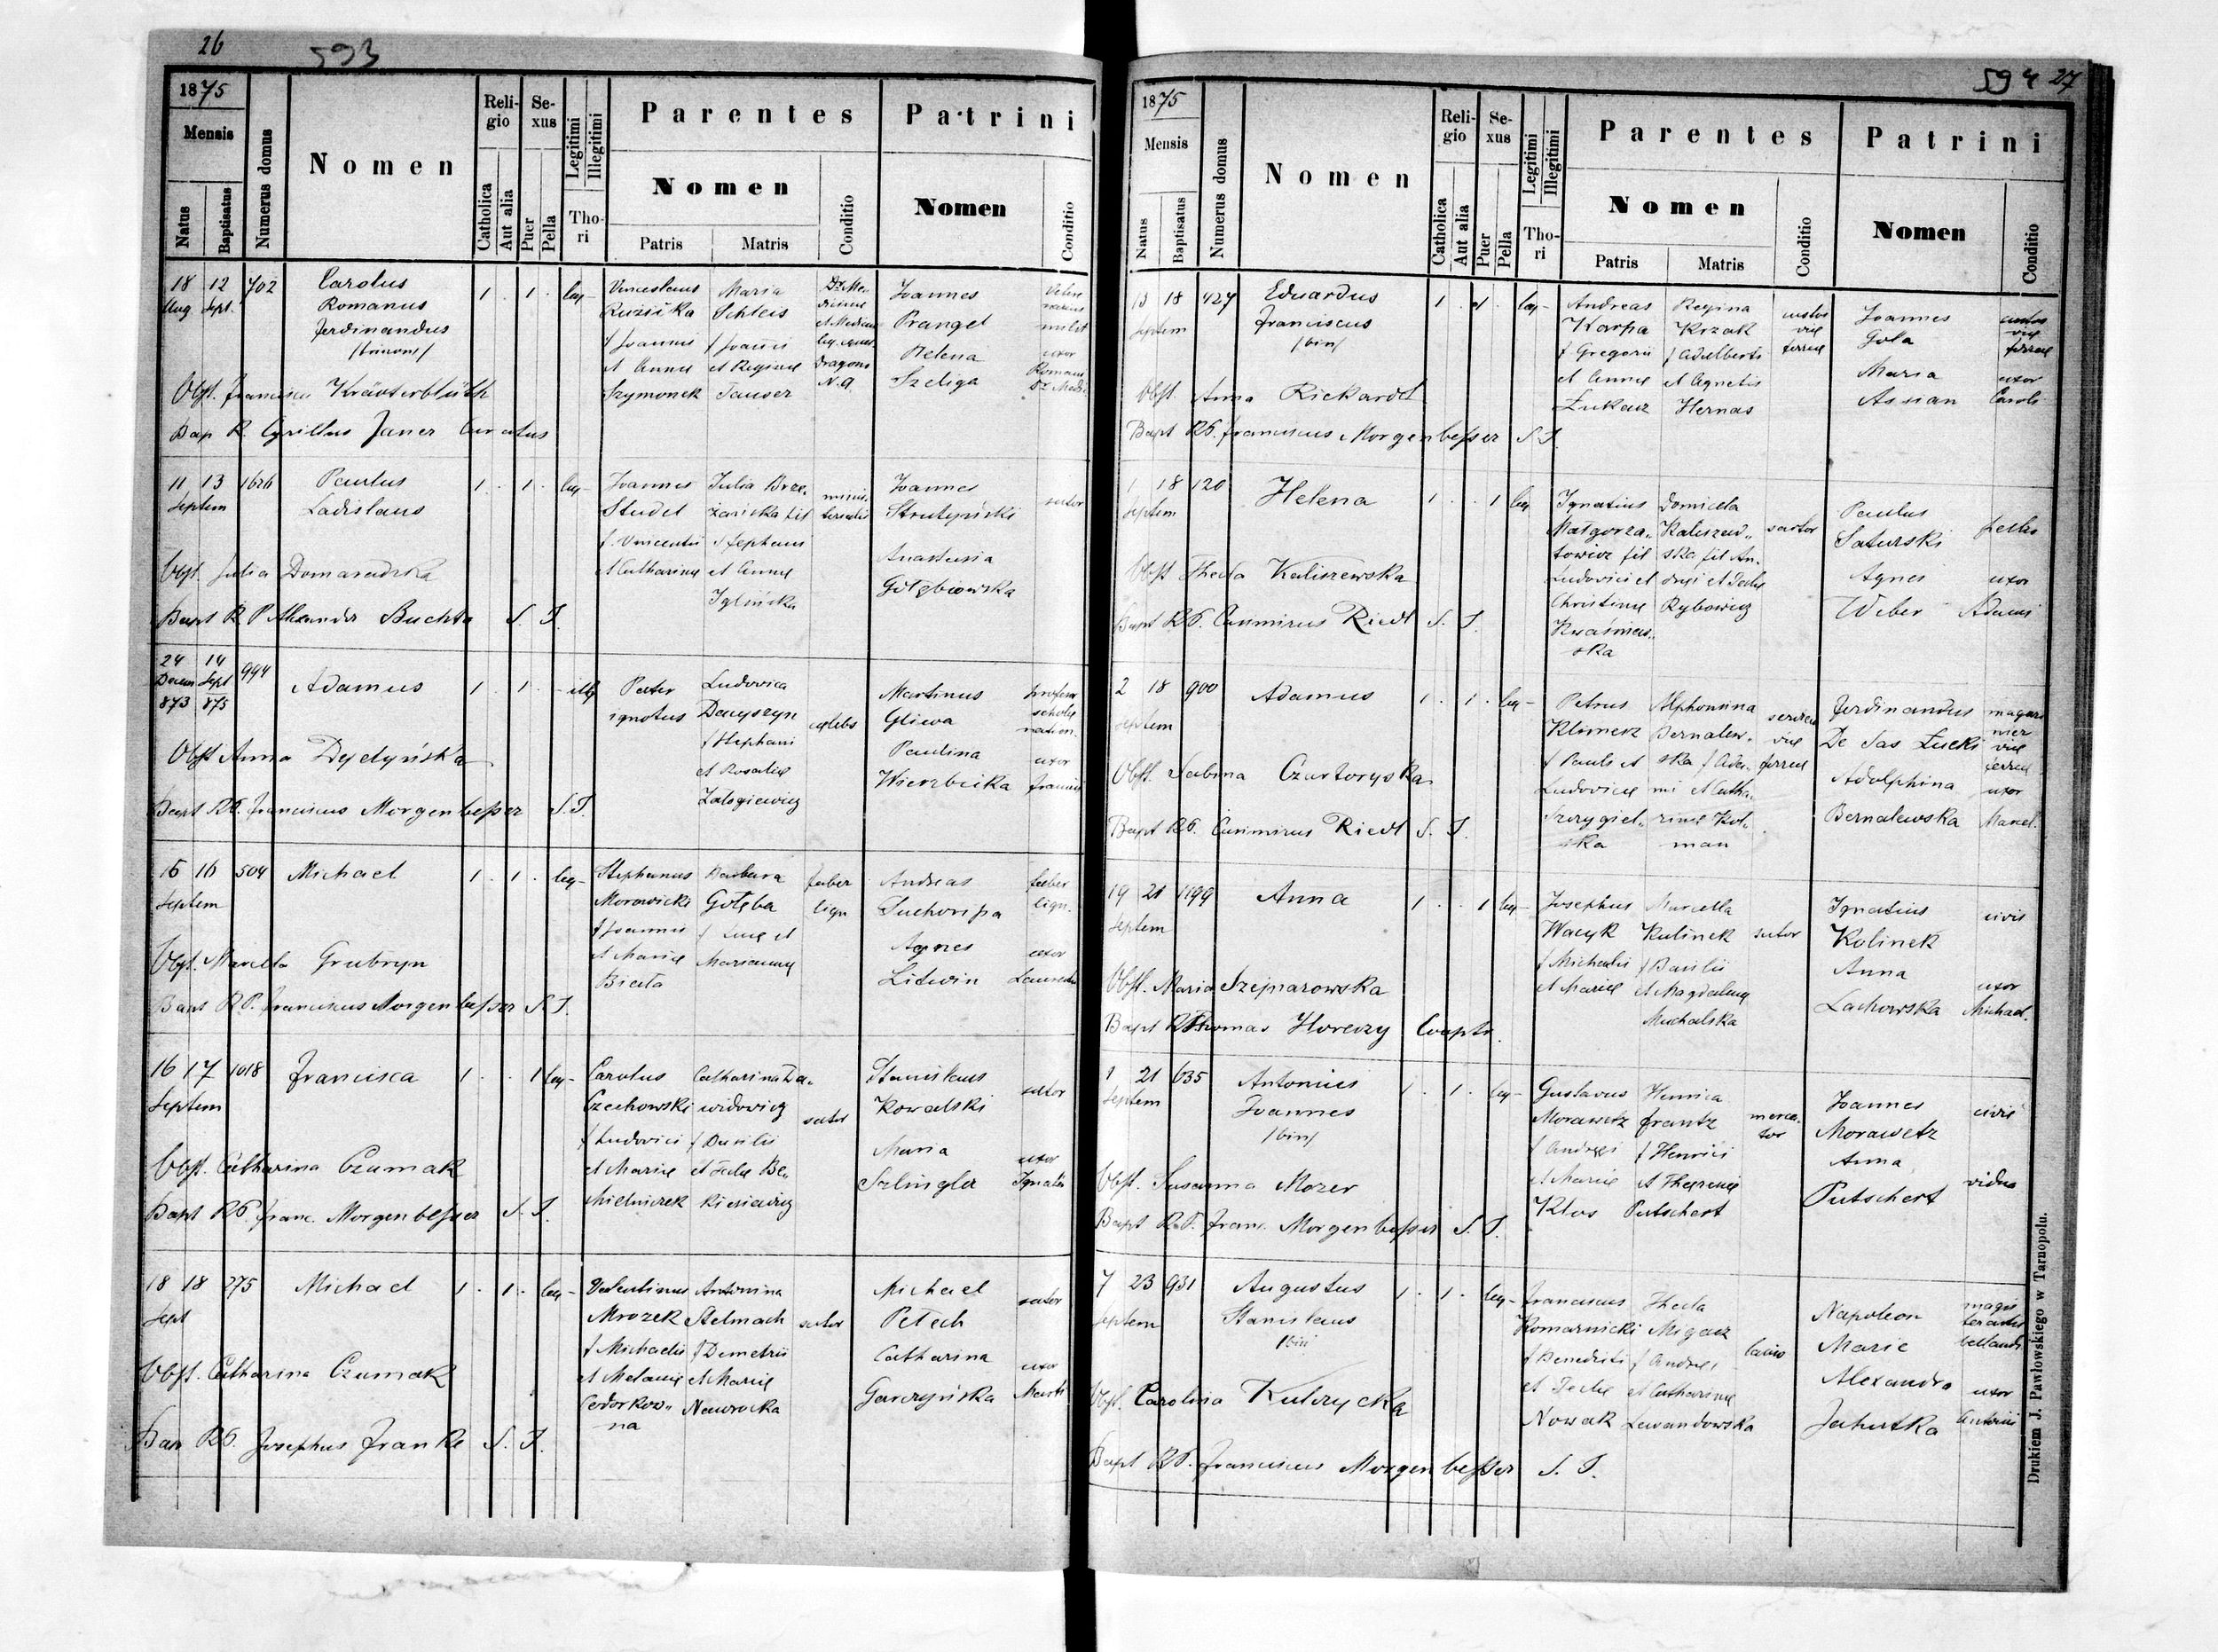 26
593
1875
Mensis
Natus
Baptisatus
Numerus domus
Nomen
Religio
Catholica
Aut alia
Sexus
Puer
Pella
Legitimi
Illegitimi
Thori
Parentes
Nomen
Patris
Matris
Conditio
Patrini
Nomen
Conditio
18 12 702 Carolus 1 . 1 . leg- Venceslaus Maria Joannes
Aug Sept. Romanus Ružička Schleis Prangel
Ferdinandus f Joannis f Joannis Helena uxor
/trinom/ et Annae et Reginae Dragons Szeliga Romani
Obst. Francisca Kräuterblüth Szymonek Tauser N. 9
Bap R. Cyrillus Janer Curatus
11 13 1626 Paulus 1 . 1 . leg- Joannes Julia Brze- Joannes sutor
Septem Ladislaus Studel zanska fil Strutyński
f. Vincentii Stephani Anastasia
Obst. Julia Domaradzka et Catharinae et Annae Gołębiowska
Iglińska
Bapt R P Alexander Buchta S. J.
24 14 994 Adamus 1 . 1 . illeg Pater Ludovica Martinus professor
Decem Sept ignotus Daczyszyn caelebs Gliwa scholae
873 875 f Stephani Paulina uxor
Obst Anna Dydyńska et Rosaliae Wierzbicka Francisci
Zalogiewicz
Bapt RP. Franciscus Morgenbesser S. J.
15 16 504 Michael 1 . 1 . leg- Stephanus Barbara faber Andreas faber
Septem Morawicki Gołęba lign Suchoripa lign.
f Joannis f Lucae et Agnes uxor
Obst. Marcella Grubryn et Mariae Mariannae Litwin
Bieta
Bapt R P. Franciscus Morgenbesser S. J.
16 17 1018 Francisca 1 . . 1 leg- Carolus Catharina Da- Stanislaus sutor
Septem Czechowski widowicz sutor Kowalski
f Ludovici f Basilii Maria uxor
Obst. Catharina Czumak et Mariae et Teclae Be- Szlingler Ignatii
Mielniczek kiesiewicz
Bapt RP. Franc. Morgenbesser S. J.
18 18 275 Michael 1 . 1 . leg- Valentinus Antonina Michael sutor
Sept Mrozek Stelmach sutor Petech
f Michaelis f Demetrii Catharina uxor
Obst. Catharina Czumak et Melaniae et Mariae Garczyńska
Fedorkow- Nawrocka
na
Bap RP. Josephus Franke S. J.
594 27
1875
Mensis
Natus
Baptisatus
Numerus domus
Nomen
Religio
Catholica
Aut alia
Sexus
Puer
Pella
Legitimi
Illegitimi
Thori
Parentes
Nomen
Patris
Matris
Conditio
Patrini
Nomen
Conditio
13 18 427 Eduardus 1 . 1 . leg- Andreas Regina custos Joannes custos
Septem Franciscus Karpa Krzak viae Gola viae
/bin/ f Gregorii f Adalberti ferreae Maria ferreae
et Annae et Agnetis Assian uxor
Obst. Anna Rickardt Łukasz Hernas Caroli
Bapt RP. Franciscus Morgenbesser S. J.
1 18 120 Helena 1 . . 1 leg Ignatius Domicela sartor Paulus
Septem Małgorza- Kaliszew- Saturski
towicz fil ska fil An- Agnes uxor
Obst Thecla Kaliszewska Ludovici et dreae et Teclae Weber Adami
Christinae Rybowicz
Bapt RP. Casimirus Riedl S. J. Kraśnień-
ska
2 18 900 Adamus 1 . 1 . leg- Petrus Alphonsina Ferdinandus
Septem Klimerz Bernalew- viae De Sas Łucki viae
f Pauli et ska f Ada- ferreae Adolphina ferreae
Obst. Sabina Czartoryska Ludovicae mi et Catha- Bernalewska uxor
Szczygiel- rinae Kol- Marcel.
ska man
Bapt RP. Casimirus Riedl S. J.
19 21 1199 Anna 1 . . 1 leg- Josephus Marcella sutor Ignatius civis
Septem Wacyk Kulinek Kolinek
f Michaelis f Basilii Anna uxor
Obst. Maria Szejnarowska et Mariae et Magdalenae Lachowska Michael.
Michalska
Bapt RP Thomas Horeczy Cooptr.
1 21 635 Antonius 1 . 1 . leg- Gustavus Henrica merca- Joannes civis
Septem Joannes Morawetz Frantz tor Morawetz
/bin/ f Andreae f Henrici Anna vidua
Obst. Susanna Mozer et Mariae et Theresiae Putschert
Klos Putschert
Bapt R.P. Franc. Morgenbesser S. J.
7 23 931 Augustus 1 . 1 . leg- Franciscus Thecla Napoleon
Septem Stanislaus Komarnicki Migacz Marie
/bin f Benedicti f Andreae Alexandra uxor
Obst. Carolina Kubrycka et Teclae et Catharinae Jahutka Antonii
Nowak Lewandowska
Bapt RP. Franciscus Morgenbesser S. J.
Drukiem J. Pawłowskiego w Tarnopolu.